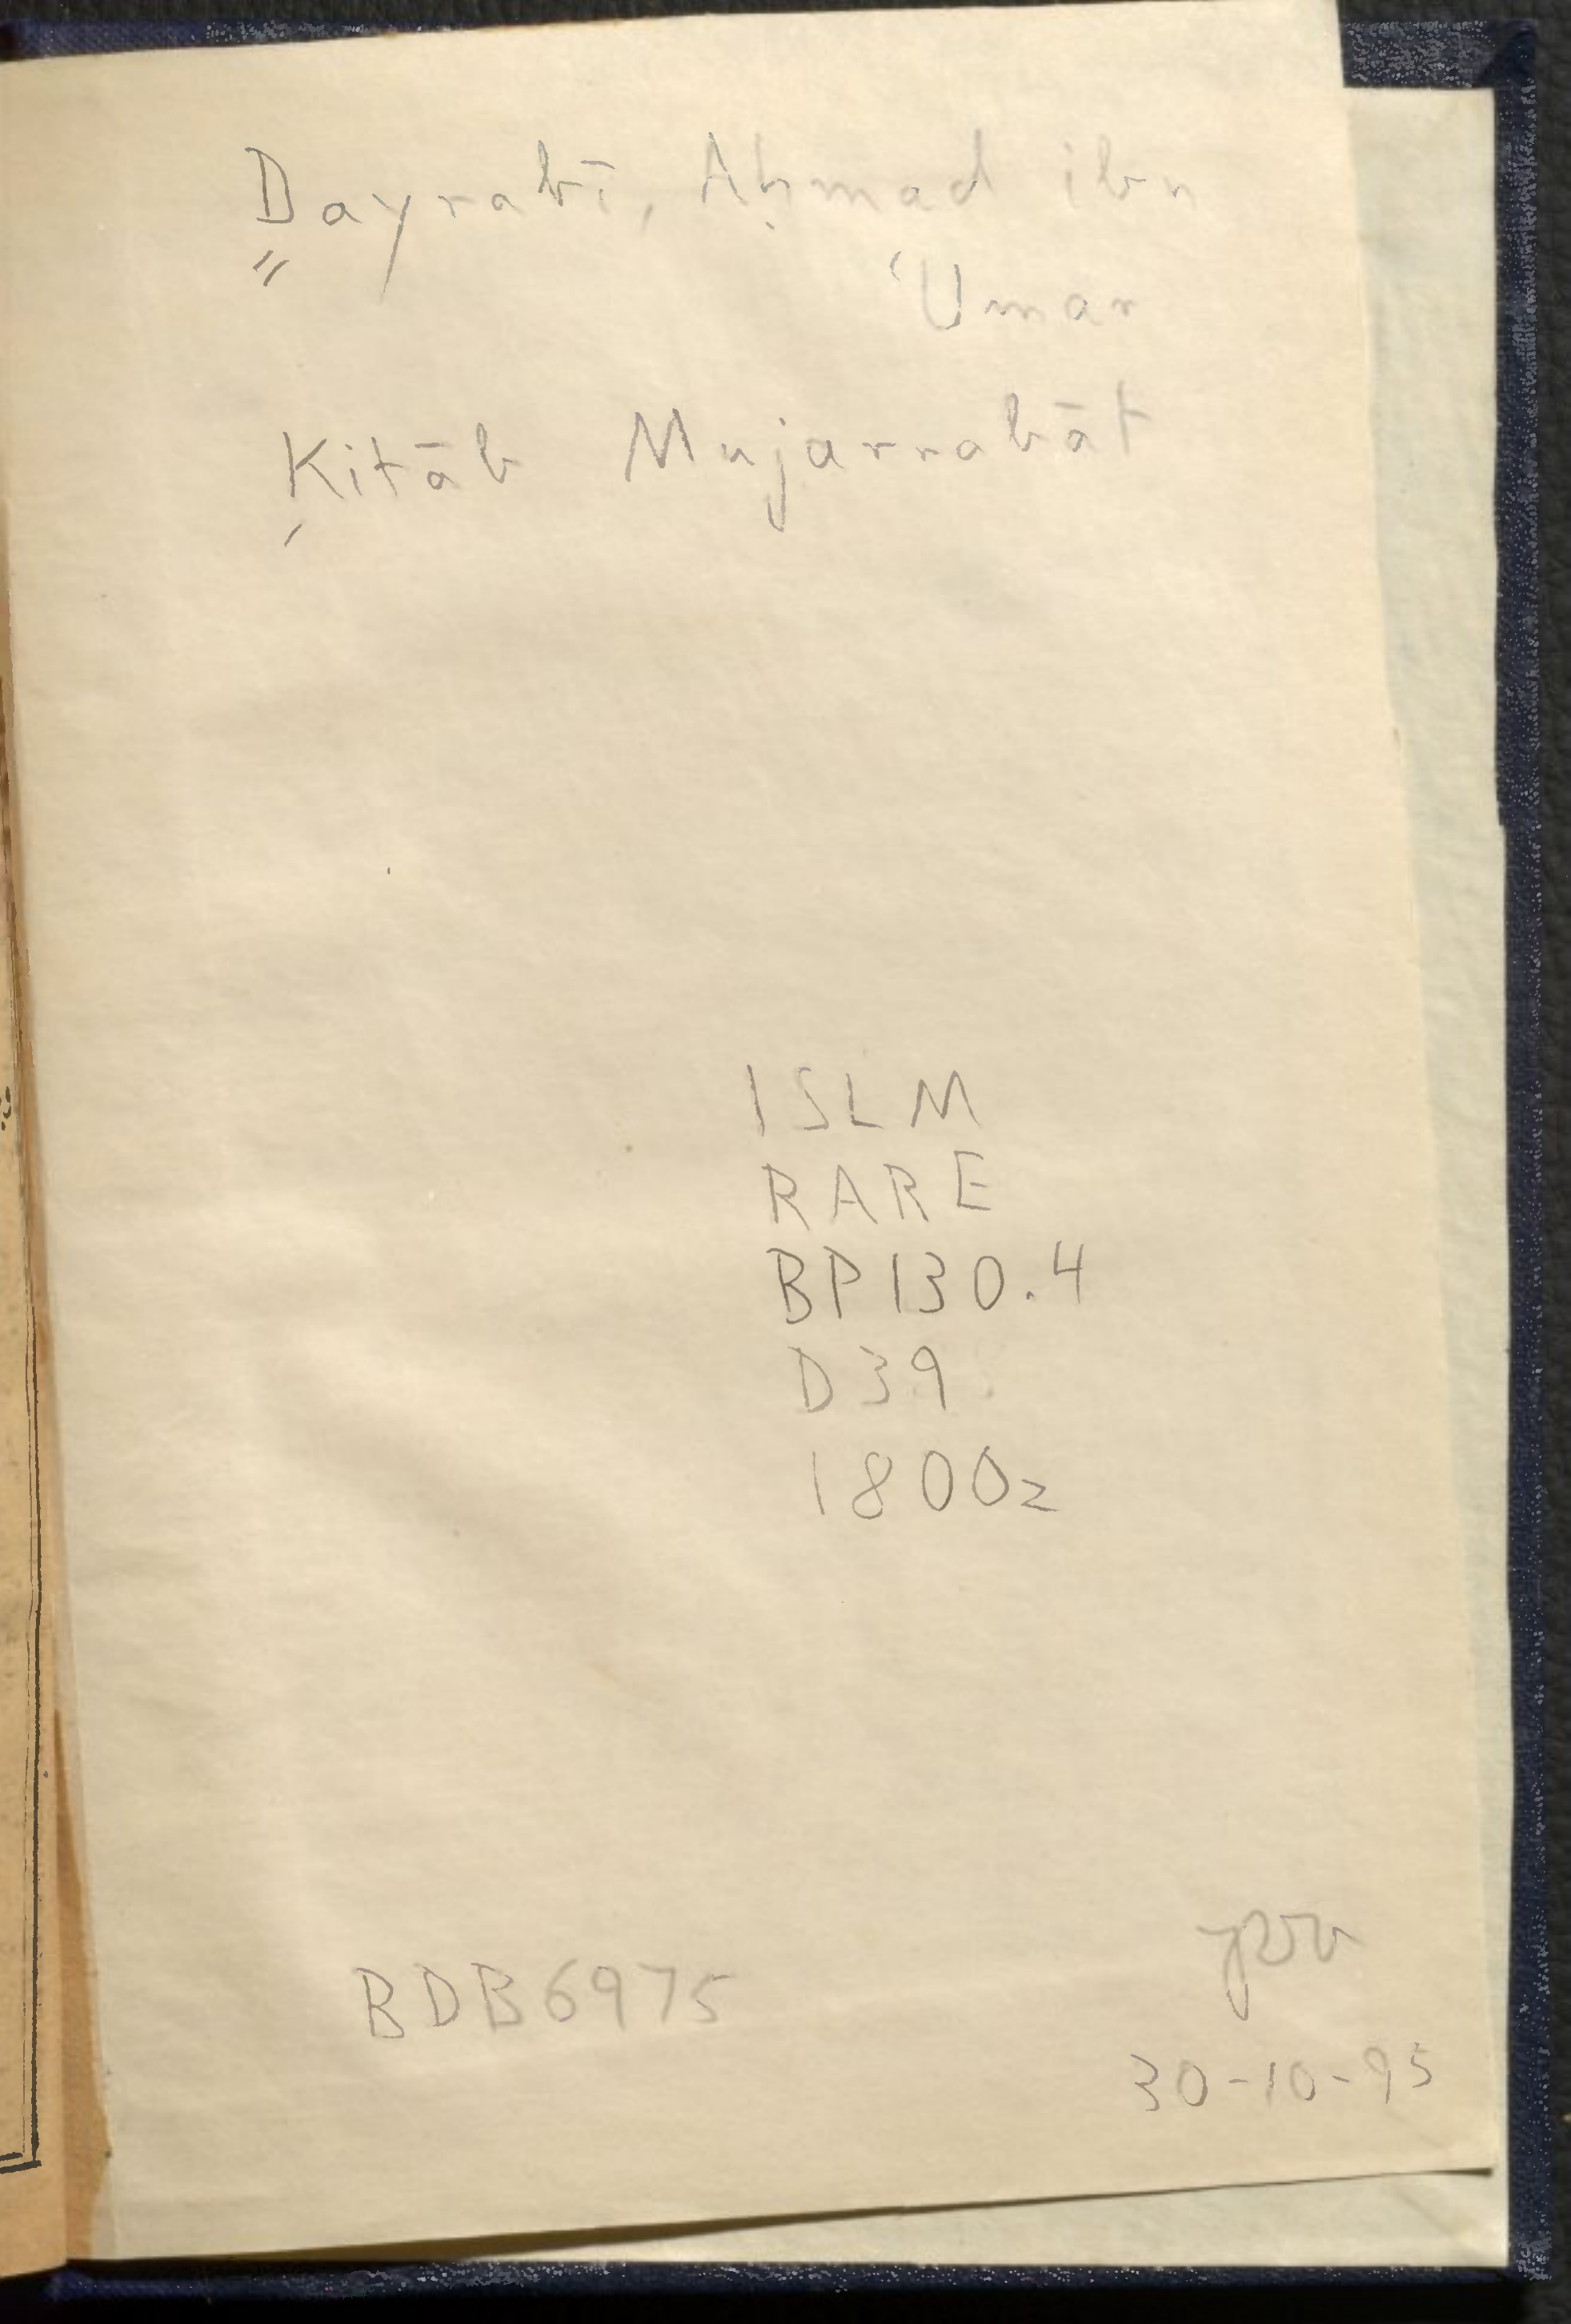 Dayrabī, Aḥmad ibn
ʿUmar
Kitāb Mujarrabāt
ISLM
RARE
BP130.4
D39
1800z
BDB6975
30-10-95